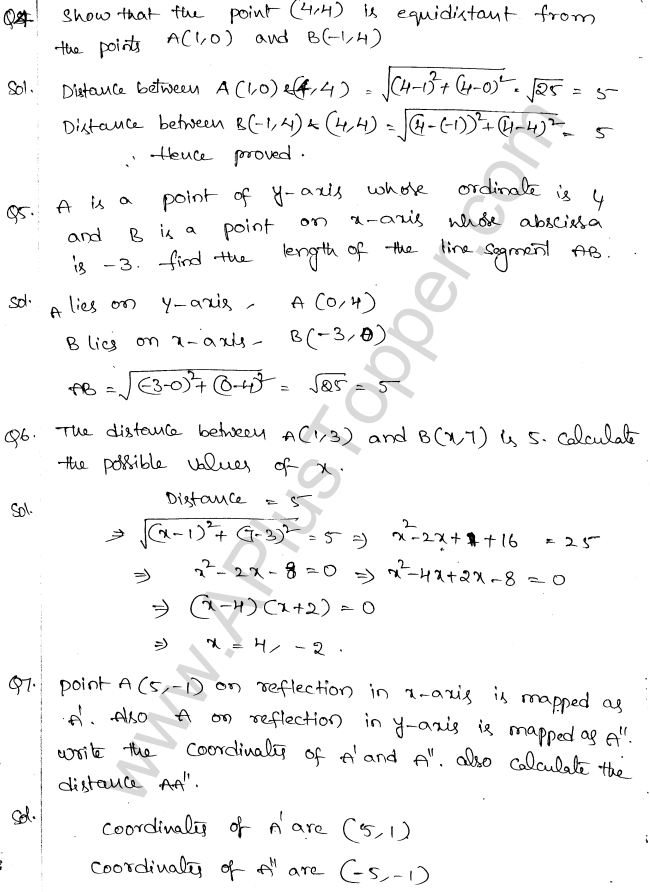 Q4 Show that the point (4,4) is equidistant from
the points A(1,0) and B(-1,4)
Sol. Distance between A(1,0) & (4,4) = √(4-1)²+(4-0)² = √25 = 5
Distance between B(-1,4) & (4,4) = √(4-(-1))²+(4-4)² = 5
∴ Hence proved.
Q5. A is a point of y-axis whose ordinate is 4
and B is a point on x-axis whose abscissa
is -3. find the length of the line segment AB.
Sol. A lies on y-axis, A(0,4)
B lies on x-axis - B(-3,0)
AB = √(-3-0)²+(0-4)² = √25 = 5
Q6. The distance between A(1,3) and B(x,7) is 5. Calculate
the possible values of x.
Sol. Distance = 5
⇒ √(x-1)²+(7-3)² = 5 ⇒ x²-2x+1+16 = 25
⇒ x²-2x-8=0 ⇒ x²-4x+2x-8=0
⇒ (x-4)(x+2)=0
⇒ x=4, -2.
Q7. point A(5,-1) on reflection in x-axis is mapped as
A'. Also A on reflection in y-axis is mapped as A''.
write the coordinates of A' and A''. also calculate the
distance AA''.
Sol. Coordinates of A' are (5,1)
Coordinates of A'' are (-5,-1)
www.APlusTopper.com